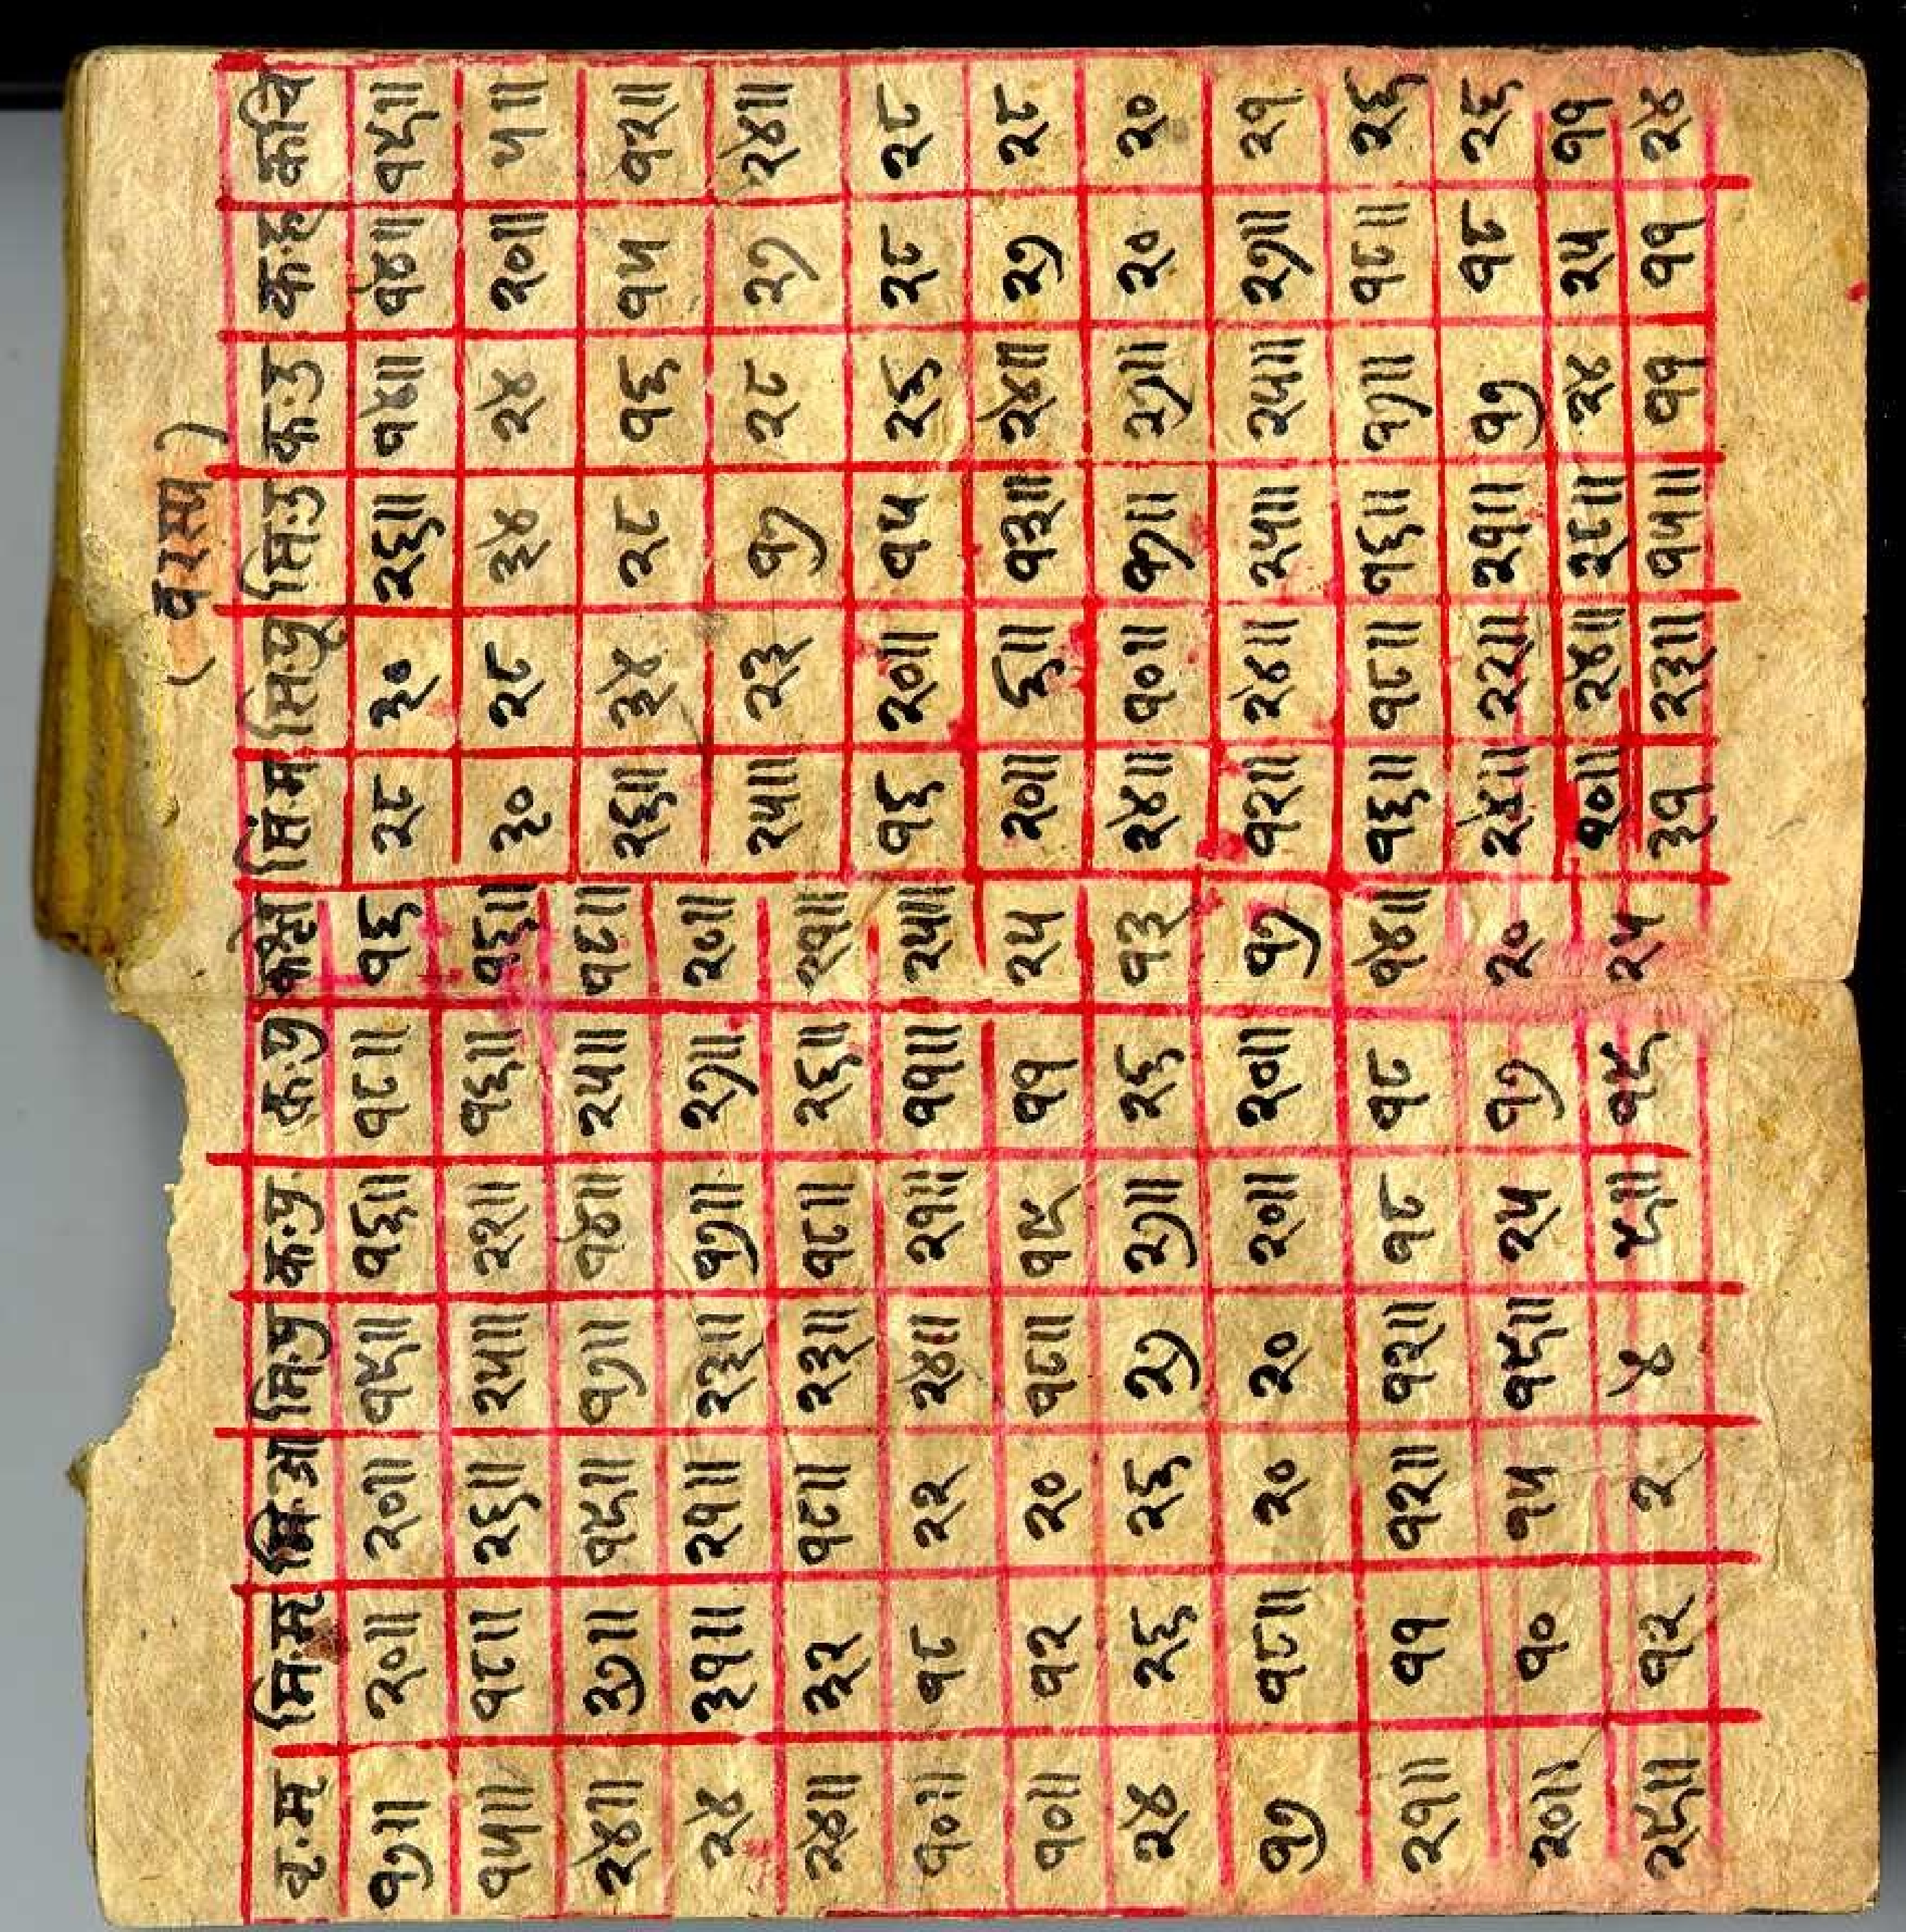 वृ.म मि.म मि.आ मि.पु क.पु क.पु क.श्ले सिं.म सि.पू सि.उ क.उ क.ह क.चि
१७॥ २०॥ २०॥ १९॥ १६॥ १८॥ १६ २८ ३० २६॥ १४॥ १४॥ १९॥
१५॥ १८॥ २६॥ २५॥ २२॥ १६॥ १६॥ ३० २८ ३४ २४ २०॥ ५॥
२४॥ ३७॥ १९॥ १७॥ १४॥ २५॥ १८॥ २६॥ ३४ २८ १६ १५ १२॥
२४ ३१॥ २१॥ २३॥ १७॥ २७॥ २०॥ २५॥ २३ १७ २८ २७ २४॥
२४॥ ३२ १८॥ २३॥ १८॥ २६॥ २१॥ १६ २०॥ १५ २६ २८ २८
१०॥ १८ २२ २४॥ २१॥ ११॥ २५॥ २०॥ ६॥ १३॥ २४॥ २७ २८
१०॥ १२ २० १८॥ १९ ११ २५ २४॥ १०॥ १७॥ २७॥ २० २०
२४ २६ २६ २७ २७॥ २६ १३ १२॥ २४॥ २५॥ २५॥ २७॥ २१
१७ १८॥ २० २० २०॥ २०॥ १७ १६॥ १८॥ १६॥ १७॥ १८॥ २६
२१॥ ११ १२॥ १२॥ १८ १८ १४॥ २४॥ २२॥ २१॥ १७ १८ २६
२०॥ १० १५ १९॥ २५ १७ २० १०॥ २४॥ २८॥ २४ २५ ११
२९॥ १२ २ ४ ९॥ १९ २५ ३१ २३॥ १५॥ ११ ११ २४